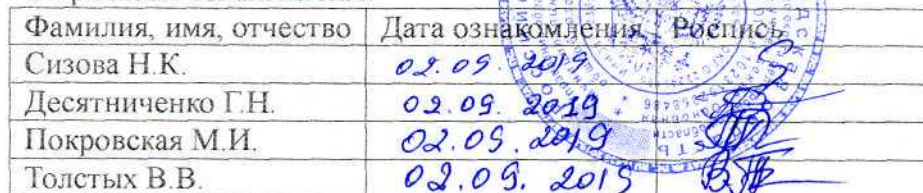 Фамилия, имя, отчество Дата ознакомления Роспись
Сизова Н.К. 02.09.2019
Десятниченко Г.Н. 02.09.2019
Покровская М.И. 02.09.2019
Толстых В.В. 02.09.2019